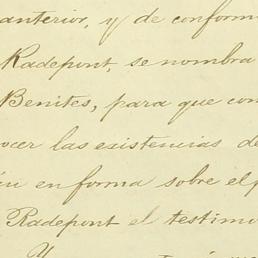 anterior, y de conform
Radepont, se nombra
Benites, para que con
ocer las existencias de
en forma sobre el p
Radepont el testimo
Y